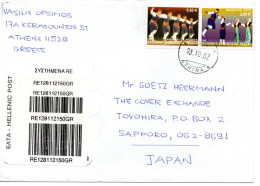 VASILIS OPSIMOS
17A KERASOUNDOS ST
ATHENS 11528
GREECE
ΣΥΣΤΗΜΕΝΑ RE
RE128112150GR
RE128112150GR
RE128112150GR
RE128112150GR
ΕΛΤΑ - HELLENIC POST
MR GOETZ HEERMANN
THE COVER EXCHANGE
TOYOHIRA, P.O. BOX 2
SAPPORO, 062-8691
JAPAN